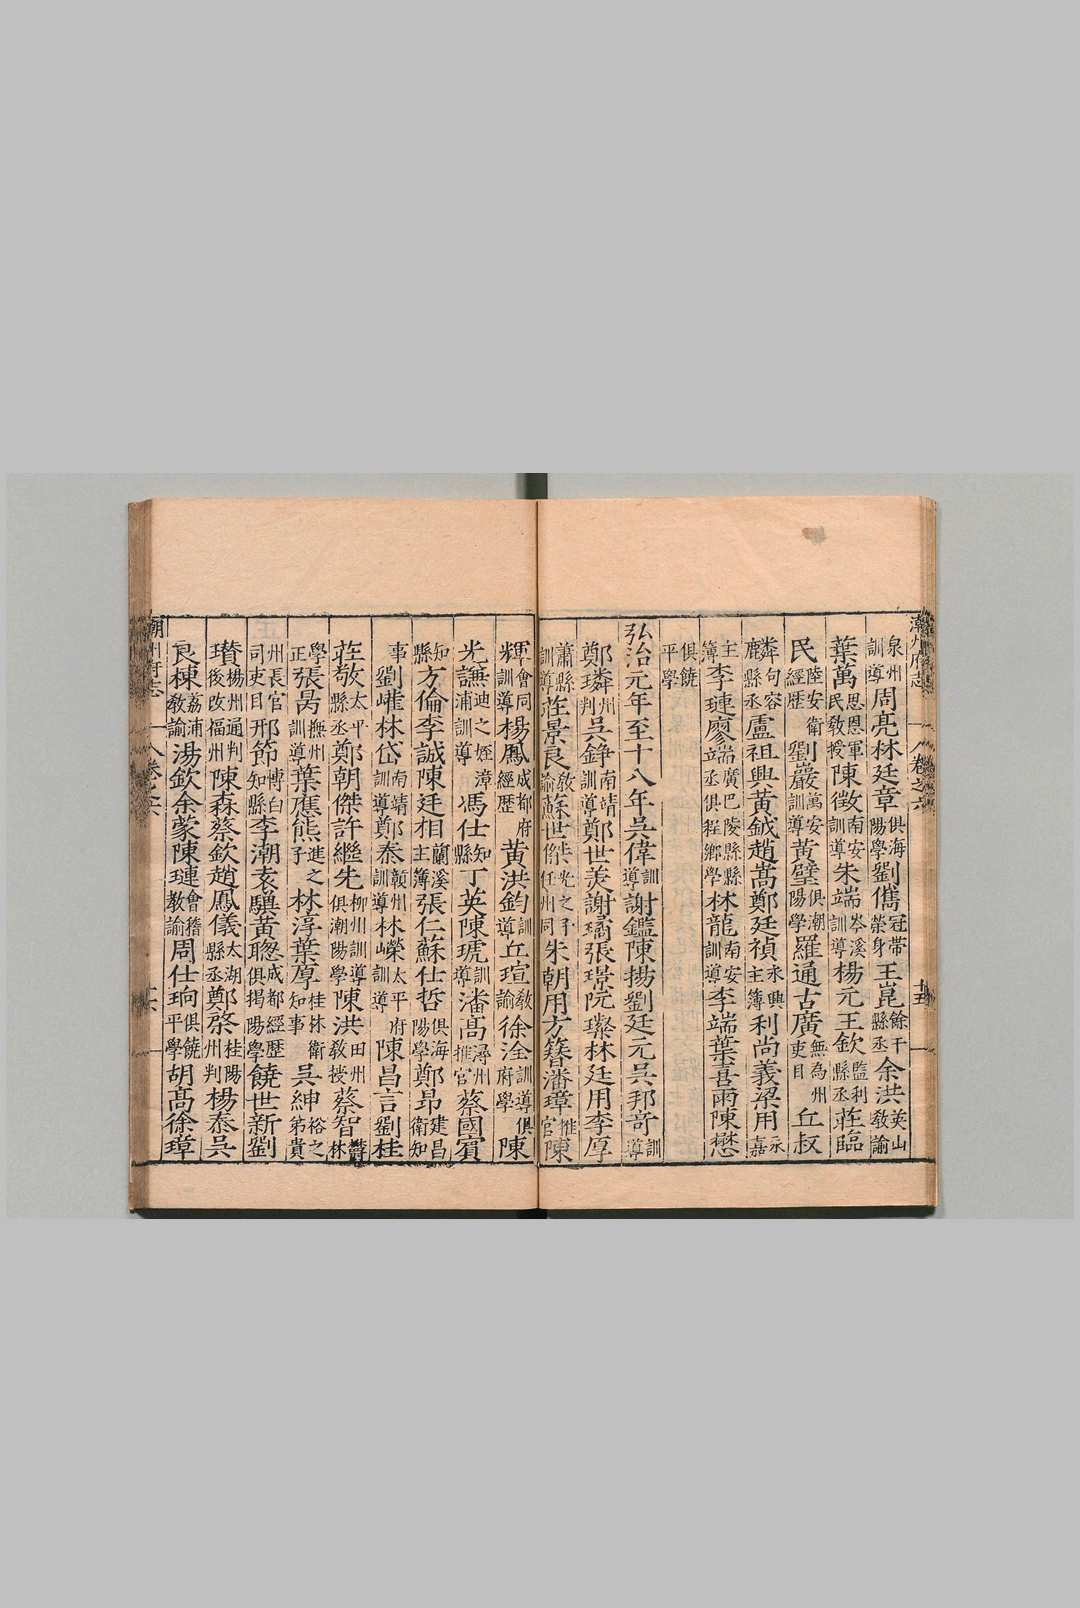 潮州府志 卷之六
泉州訓導周亮林廷章俱海陽學劉儁冠帶榮身王崑餘干縣丞余洪英山教諭
葉萬思恩軍民教授陳徵南安訓導朱端岑溪訓導楊元王欽監利縣丞莊臨
民陸安衛經歷劉巖萬安訓導黃璧俱潮陽學羅通古廣無為州吏目丘叔
麟句容縣丞盧祖興黃鉞趙嵩鄭廷禎永興主簿利尚義梁用永嘉
主簿李璉廖嵩廣巴陵縣縣丞俱程鄉學林龍南安訓導李端葉喜雨陳懋
俱饒平學
弘治元年至十八年吳偉訓導謝鑑陳楊劉廷元吳邦奇訓導
鄭璘州判吳錚南靖訓導鄭世美謝璚張璟阮璨林廷用李厚
蕭縣訓導莊景良教諭蘇世傑光之子任州同朱朝用方簪潘璋推官陳
輝會同訓導楊鳳成都府經歷黃洪鈞訓導丘瑄教諭徐淦訓導俱府學陳
光譕迪之姪漳浦訓導馮仕知縣丁英陳琥訓導潘高潯州推官蔡國賓
知縣方倫李誠陳廷相蘭溪主簿張仁蘇仕哲俱海陽學鄭昂建昌衛知
事劉㠁林岱南靖訓導鄭泰贛州訓導林嶸太平府訓導陳昌言劉桂
莊敬太平縣丞鄭朝傑許繼先柳州訓導俱潮陽學陳洪田州教授蔡智鬱林
學正張昺撫州訓導葉應熊進之子林淳葉厚桂林衛知事吳紳裕之弟貴
州長官司吏目邢節博白知縣李潮袁驥黃聰成都經歷俱揭陽學饒世新劉
瓚楊州通判後改福州陳森蔡欽趙鳳儀太湖縣丞鄭啓桂陽州判楊泰吳
良棟荔浦教諭湯欽余蒙陳璉會稽教諭周仕珦俱饒平學胡高徐璋
潮州府志 卷之六 十六